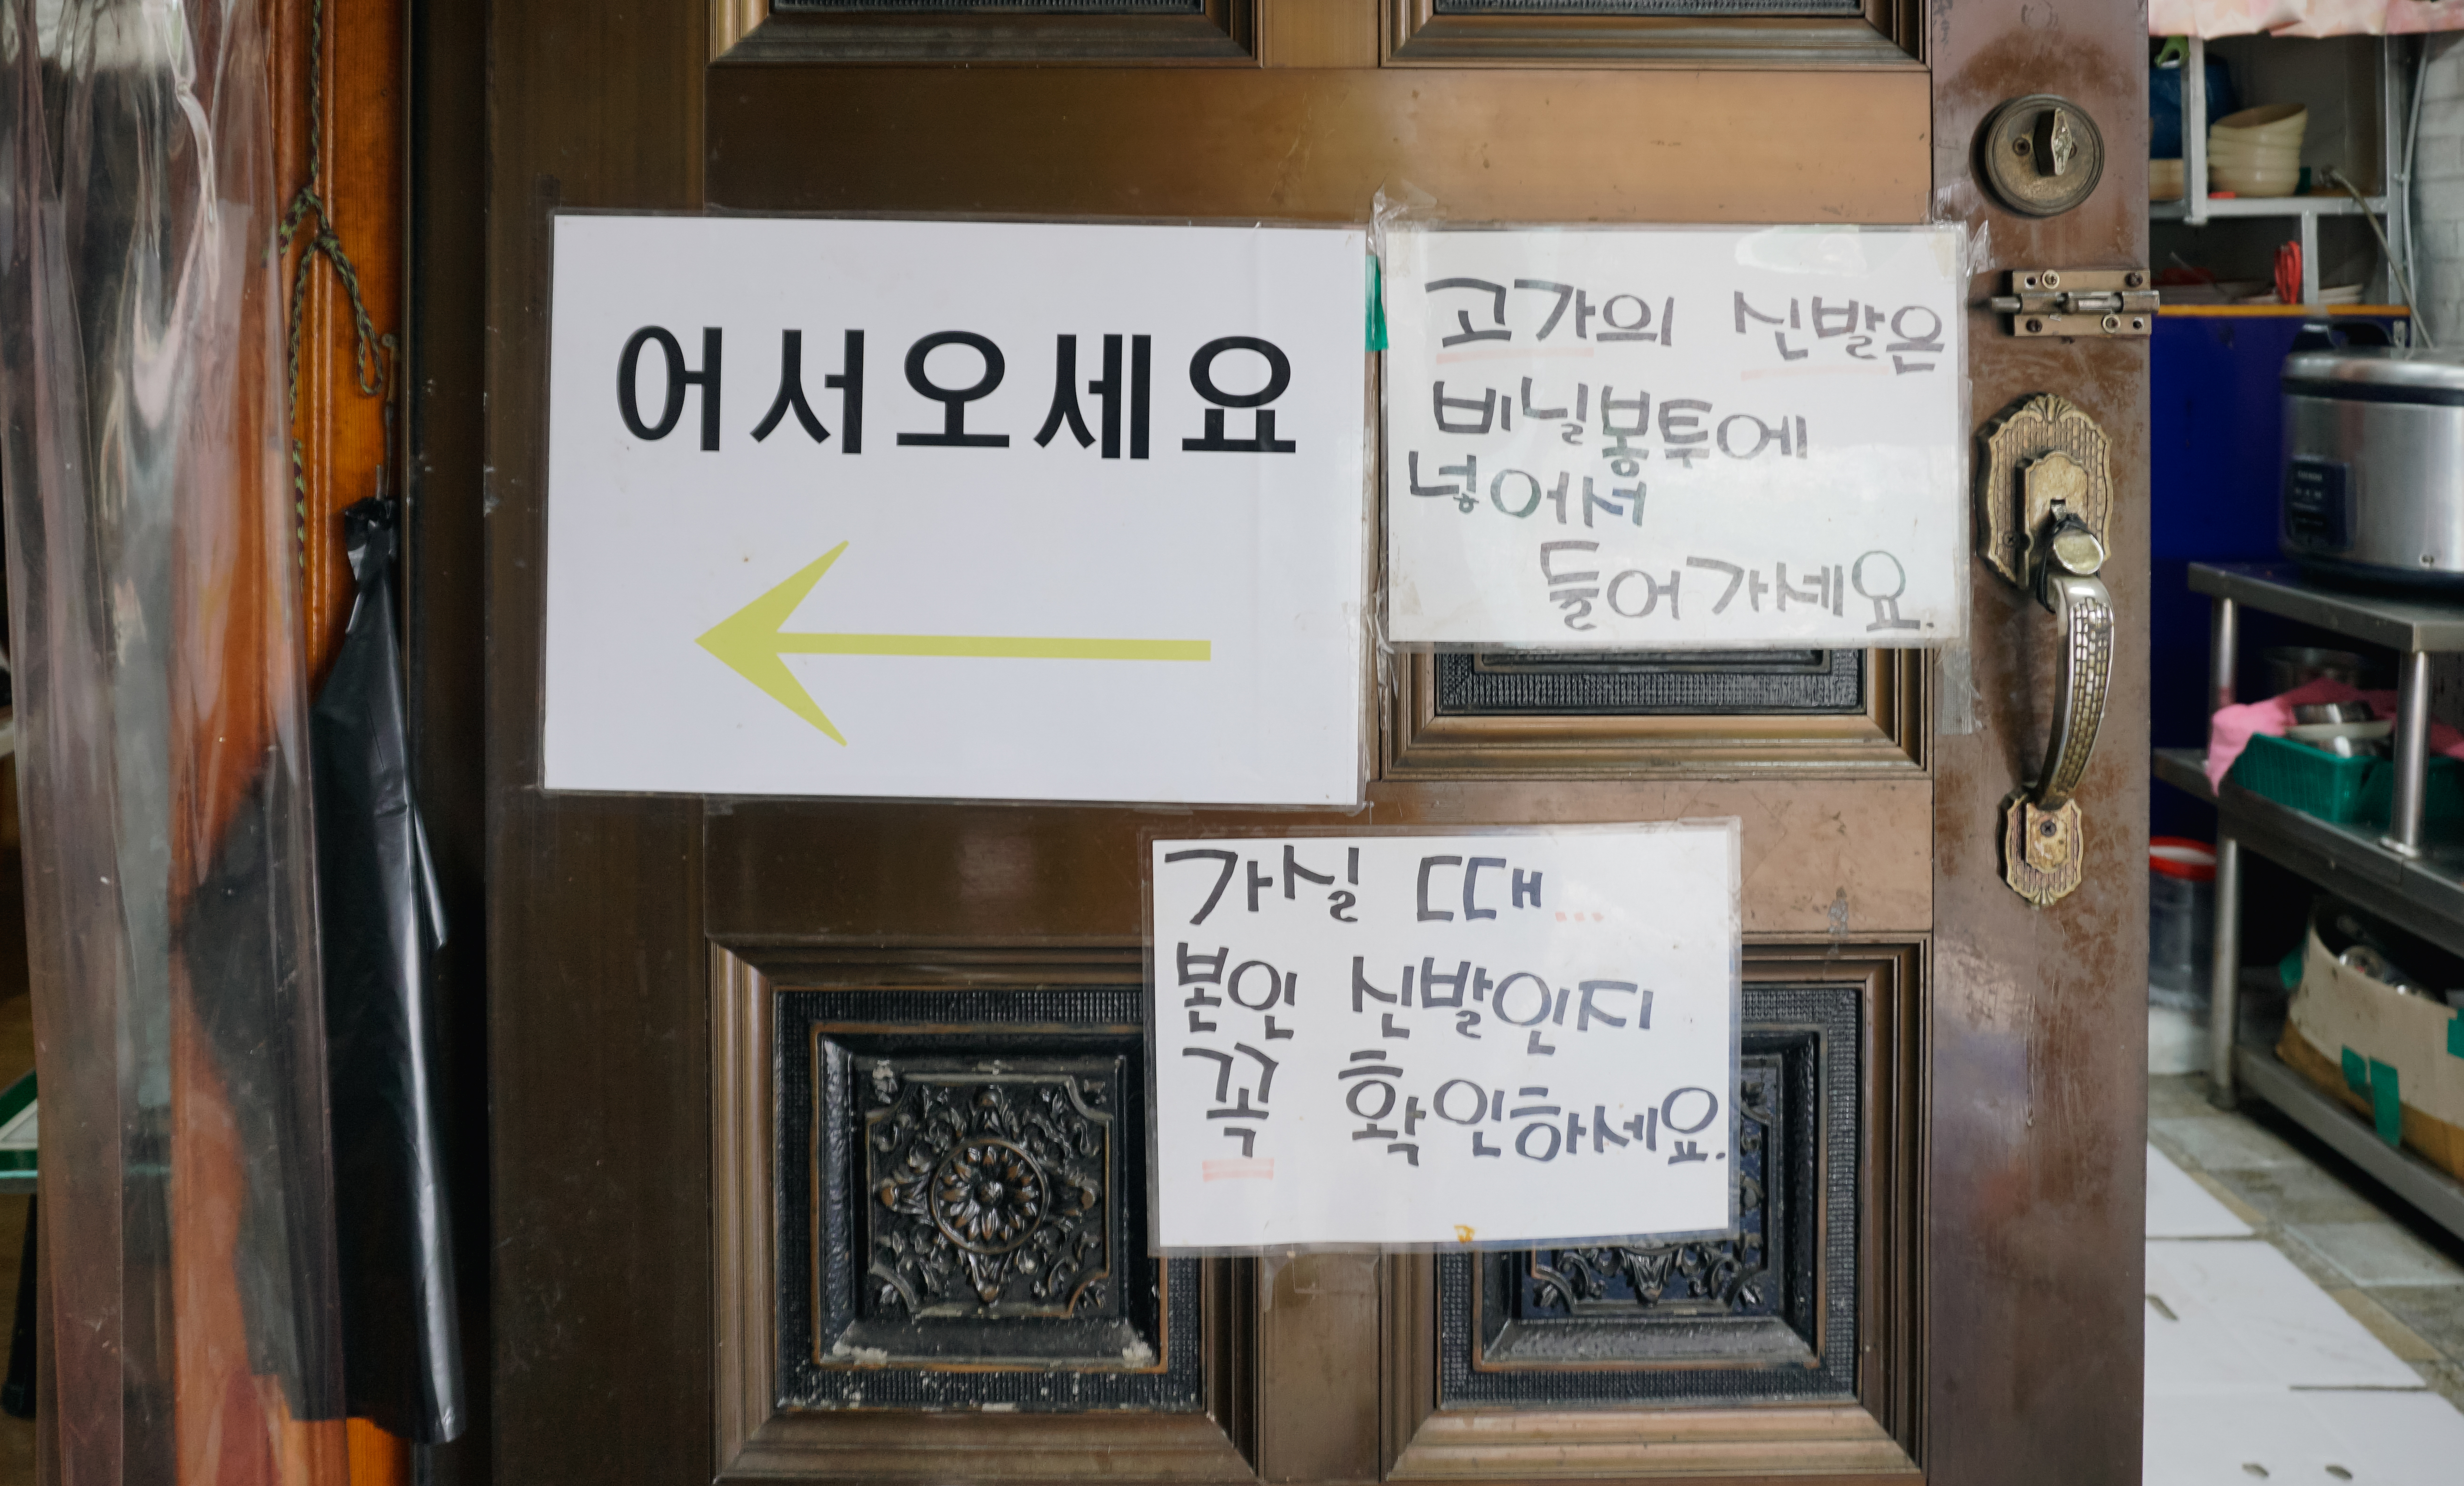 어서오세요
고가의 신발은
비닐봉투에
넣어서
들어가세요.
가실 때...
본인 신발인지
꼭 확인하세요.